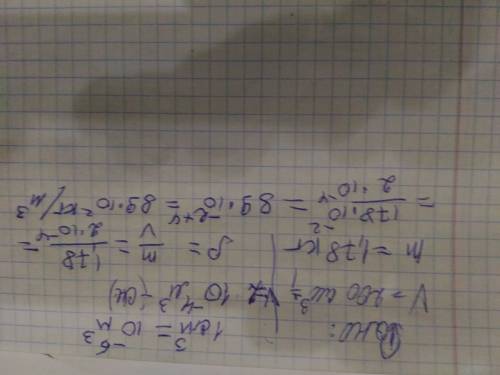 Дано:
1 см³ = 10⁻⁶ м³
V = 200 см³ = 2·10⁻⁴ м³ (СИ)
m = 1,78 кг
ρ = m/V = 1,78/2·10⁻⁴ =
= 178·10⁻²/2·10⁻⁴ = 89·10⁻²⁺⁴ = 89·10² кг/м³